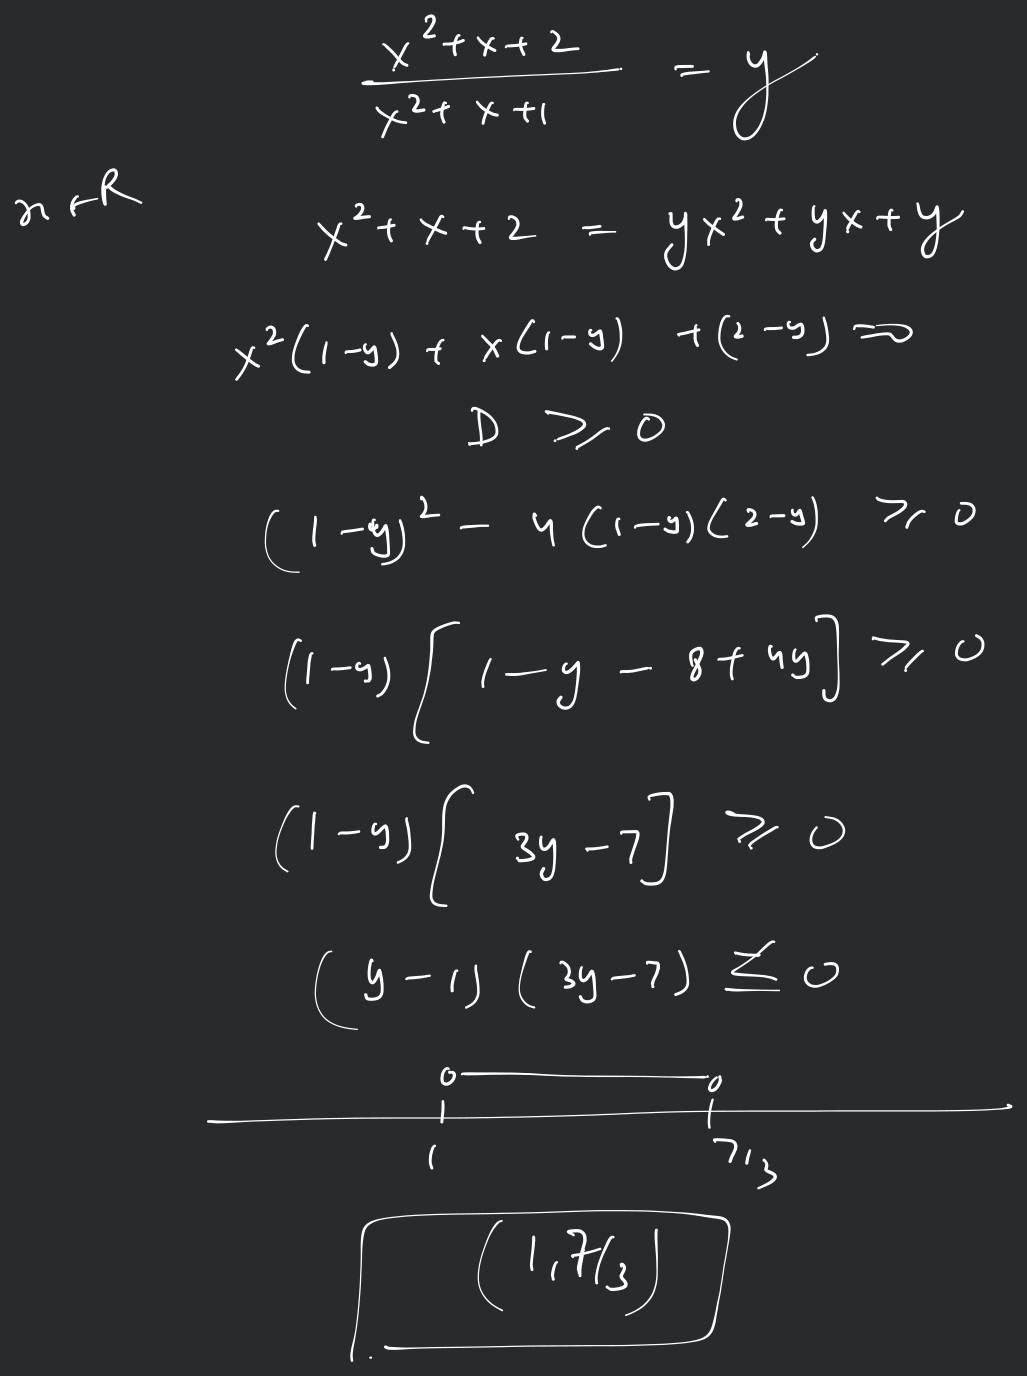 x²+x+2 / x²+x+1 = y
x ∈ R
x²+x+2 = yx²+yx+y
x²(1-y) + x(1-y) + (2-y) = 0
D ⩾ 0
(1-y)² - 4(1-y)(2-y) ⩾ 0
(1-y)[1-y - 8+4y] ⩾ 0
(1-y)[3y-7] ⩾ 0
(y-1)(3y-7) ≤ 0
1 7/3
(1, 7/3)